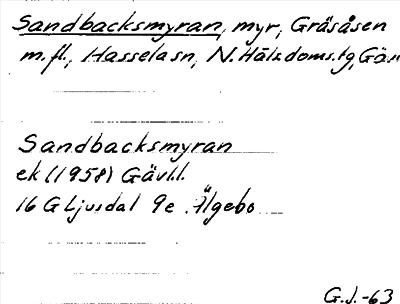 Sandbacksmyran, myr, Gräsåsen
m.fl., Hassela sn, N. Häls. doms.tg, Gäv
Sandbacksmyran
ek (1958) Gävl.l.
16 G Ljusdal 9e Älgebo
G.J.-63